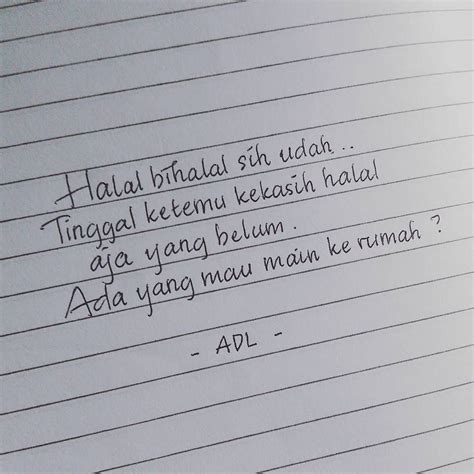 Halal bihalal sih udah..
Tinggal ketemu kekasih halal
aja yang belum.
Ada yang mau main ke rumah ?
- ADL -